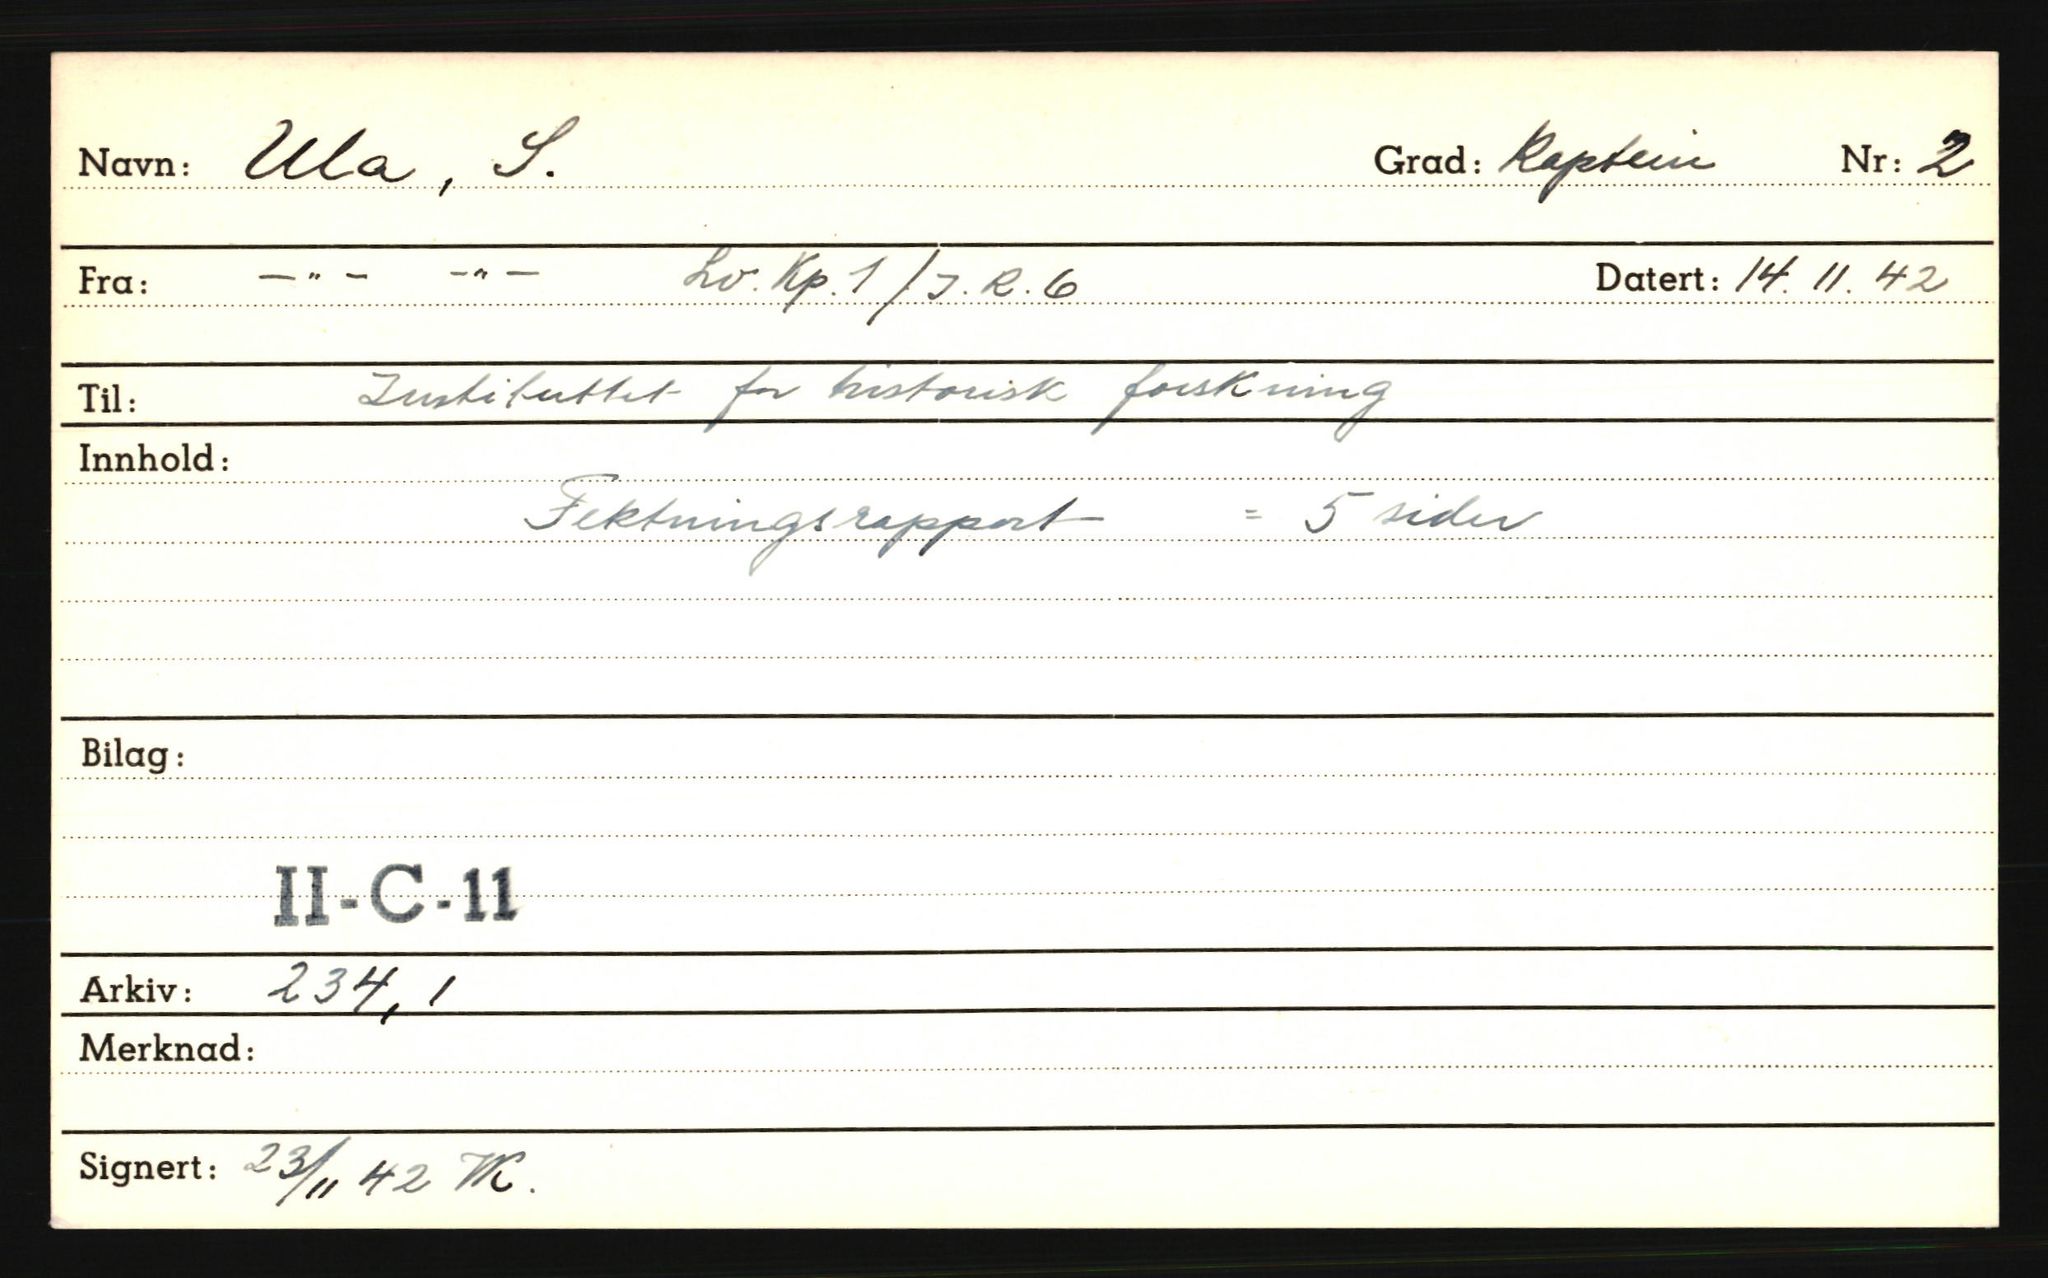 Navn: Ula, S. Grad: Kaptein Nr: 2
Fra: —"— —"— Lv. Kp. 1 / J. R. 6 Datert: 14. 11. 42
Til: Instituttet for historisk forskning
Innhold:
Fektningsrapport = 5 sider
Bilag:
II-C-11
Arkiv: 234,1
Merknad:
Signert: 23/11 42 VK.